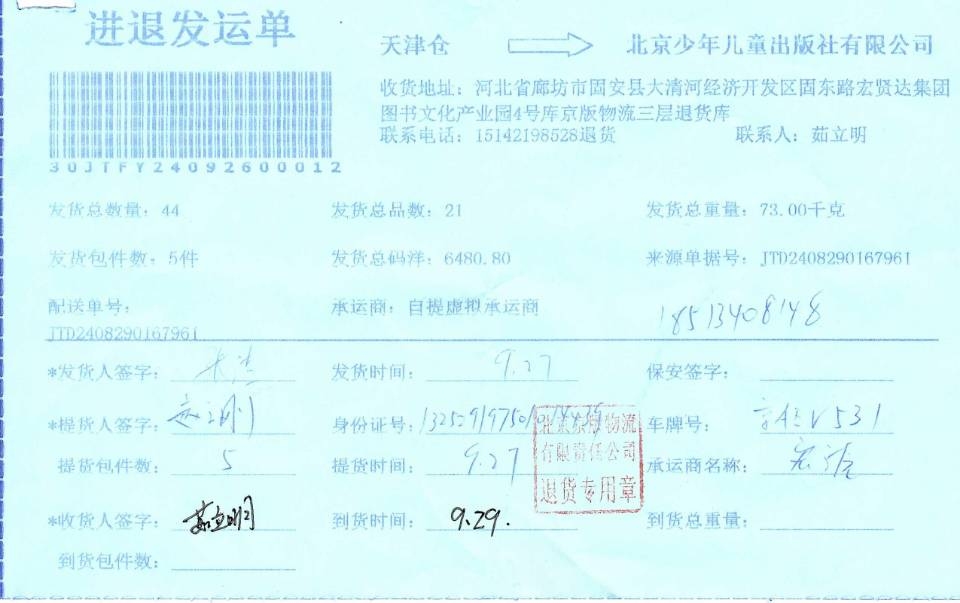 进退发运单
天津仓 北京少年儿童出版社有限公司
收货地址：河北省廊坊市固安县大清河经济开发区固东路宏贤达集团
图书文化产业园4号库京版物流三层退货库
联系电话：15142198528退货 联系人：茹立明
30JTFY24092600012
发货总数量：44 发货总品数：21 发货总重量：73.00千克
发货包件数：5件 发货总码洋：6480.80 来源单据号：JTD2408290167961
配送单号： 承运商：自提虚拟承运商 18513408148
JTD2408290167961
*发货人签字： 发货时间：9.27 保安签字：
*提货人签字： 身份证号： 车牌号：
提货包件数：5 提货时间：9.27 承运商名称：
北京京版物流
有限责任公司
退货专用章
*收货人签字：茹立明 到货时间：9.29. 到货总重量：
到货包件数：